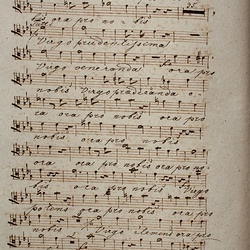 ora pro nobis
Virgo prudentissima
Virgo veneranda ora pro
nobis Virgo praedicanda o-
ra ora pro nobis ora pro
nobis ora pro nobis
ora ora pro nobis ora pro no
bis ora pro nobis Virgo
potens ora pro nobis ora pro
nobis Virgo clemens ora pro